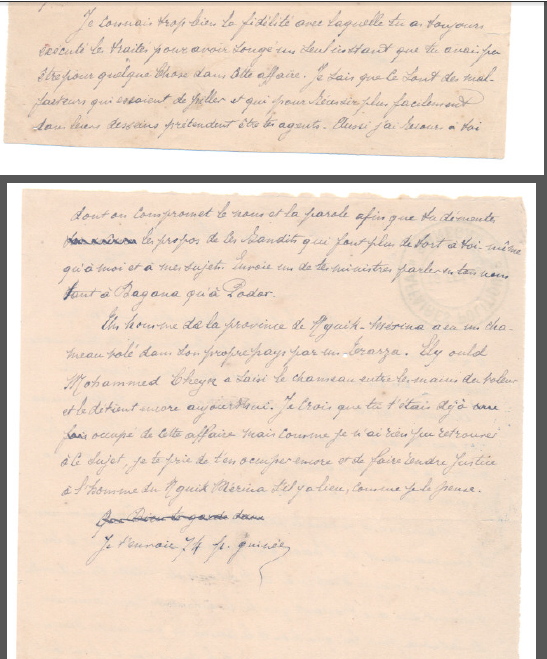 Je connais trop bien la fidélité avec laquelle tu as toujours
exécuté les traités pour avoir songé un seul instant que tu avais pu
être pour quelque chose dans cette affaire. Je sais que ce sont des mal-
faiteurs qui essaient de piller et qui pour réussir plus facilement
dans leurs desseins prétendent être tes agents. Aussi j'ai recours à toi
dont on compromet le nom et la parole afin que tu démentes
les propos de ces bandits qui font plus de tort à toi-même
qu'à moi et à mes sujets. Envoie un de tes ministres parler en ton nom
tant à Bagana qu'à Podor.
Un homme de la province de N'guik-Mérina a eu un cha-
meau volé dans son propre pays par un Trarza. Ely ould
Mohammed Cheyk a saisi le chameau entre les mains du voleur
et le détient encore aujourd'hui. Je crois que tu t'étais déjà une
fois occupé de cette affaire mais comme je n'ai rien pu retrouver
à ce sujet, je te prie de t'en occuper encore et de faire rendre justice
à l'homme du N'guik Mérina s'il y a lieu, comme je le pense.
Que Dieu te garde dans
Je t'envoie 74 p. guinée